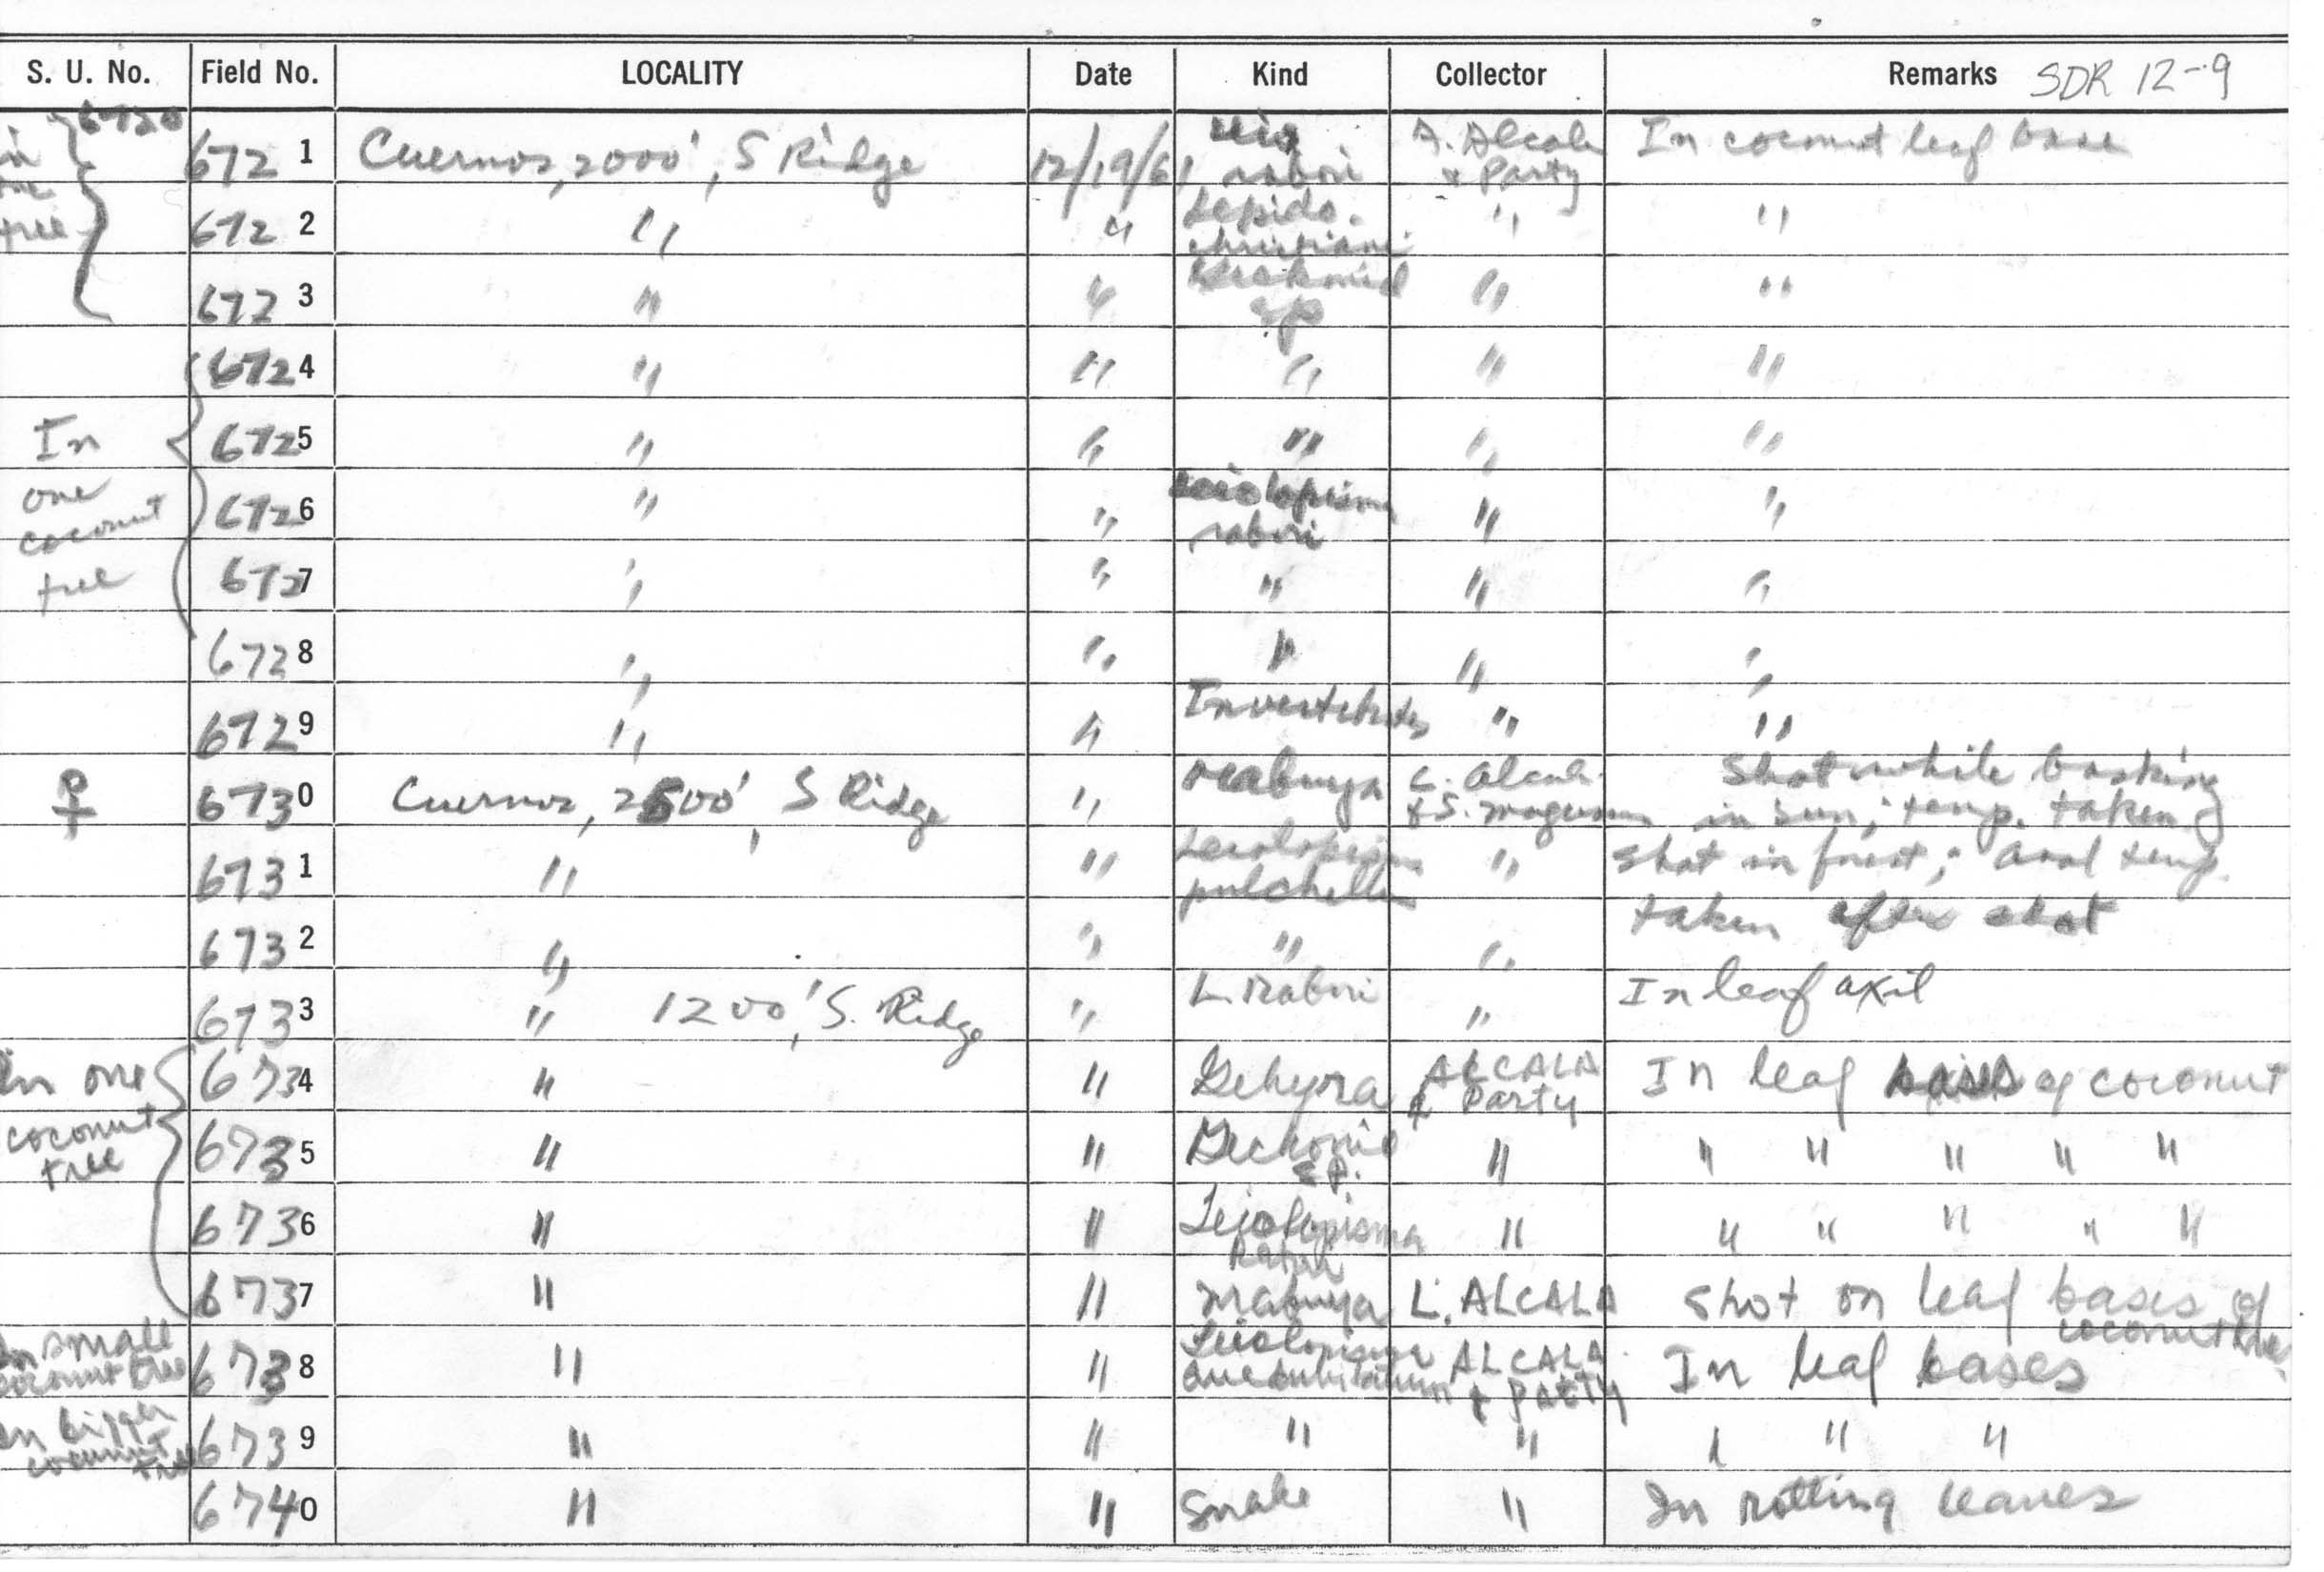 S. U. No. Field No. LOCALITY Date Kind Collector Remarks SDR 12-9
6720
in one tree
6721 Cuernos, 2000', S Ridge 12/19/61 Leio rabori A. Alcala & Party In coconut leaf base
6722 " " Lepido. christiani " "
6723 " " Gekkonid sp " "
6724 " " " " "
In one coconut tree
6725 " " " " "
6726 " " Leiolopisma rabori " "
6727 " " " " "
6728 " " " " "
6729 " " Invertebrates " "
♀ 6730 Cuernos, 2500', S Ridge " Mabuya L. Alcala & S. Magusara Shot while basking in sun; temp. taken
6731 " " Leiolopisma pulchellum " Shot in forest; anal temp.
6732 " " " " taken after shot
6733 " 1200', S. Ridge " L. rabori " In leaf axil
In one coconut tree
6734 " " Gehyra ALCALA & Party In leaf bases of coconut
6735 " " Geckonid sp. " " " " " "
6736 " " Leiolopisma rabori " " " " " "
6737 " " Mabuya L. ALCALA Shot on leaf bases of coconut tree
In small coconut tree 6738 " " Leiolopisma quadrivittatum ALCALA & Party In leaf bases
In bigger coconut tree 6739 " " " " " " "
6740 " " Snake " In rotting leaves